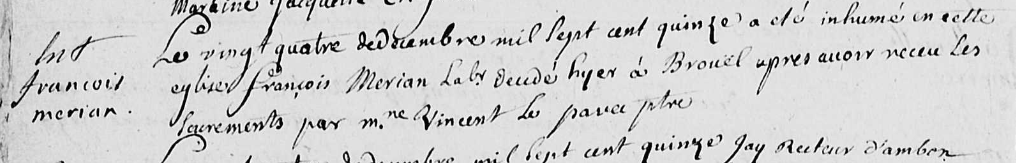 Martine Jacquette
Int
francois
merian.
Le vingt quatre dedecembre mil sept cent quinze a eté inhumé en cette
eglise françois Merian labr decedé hyer à Brouël apres avoir receu les
sacrements par m.re Vincent le pavec ptre
decembre mil sept cent quinze Jay Recteur d'ambon